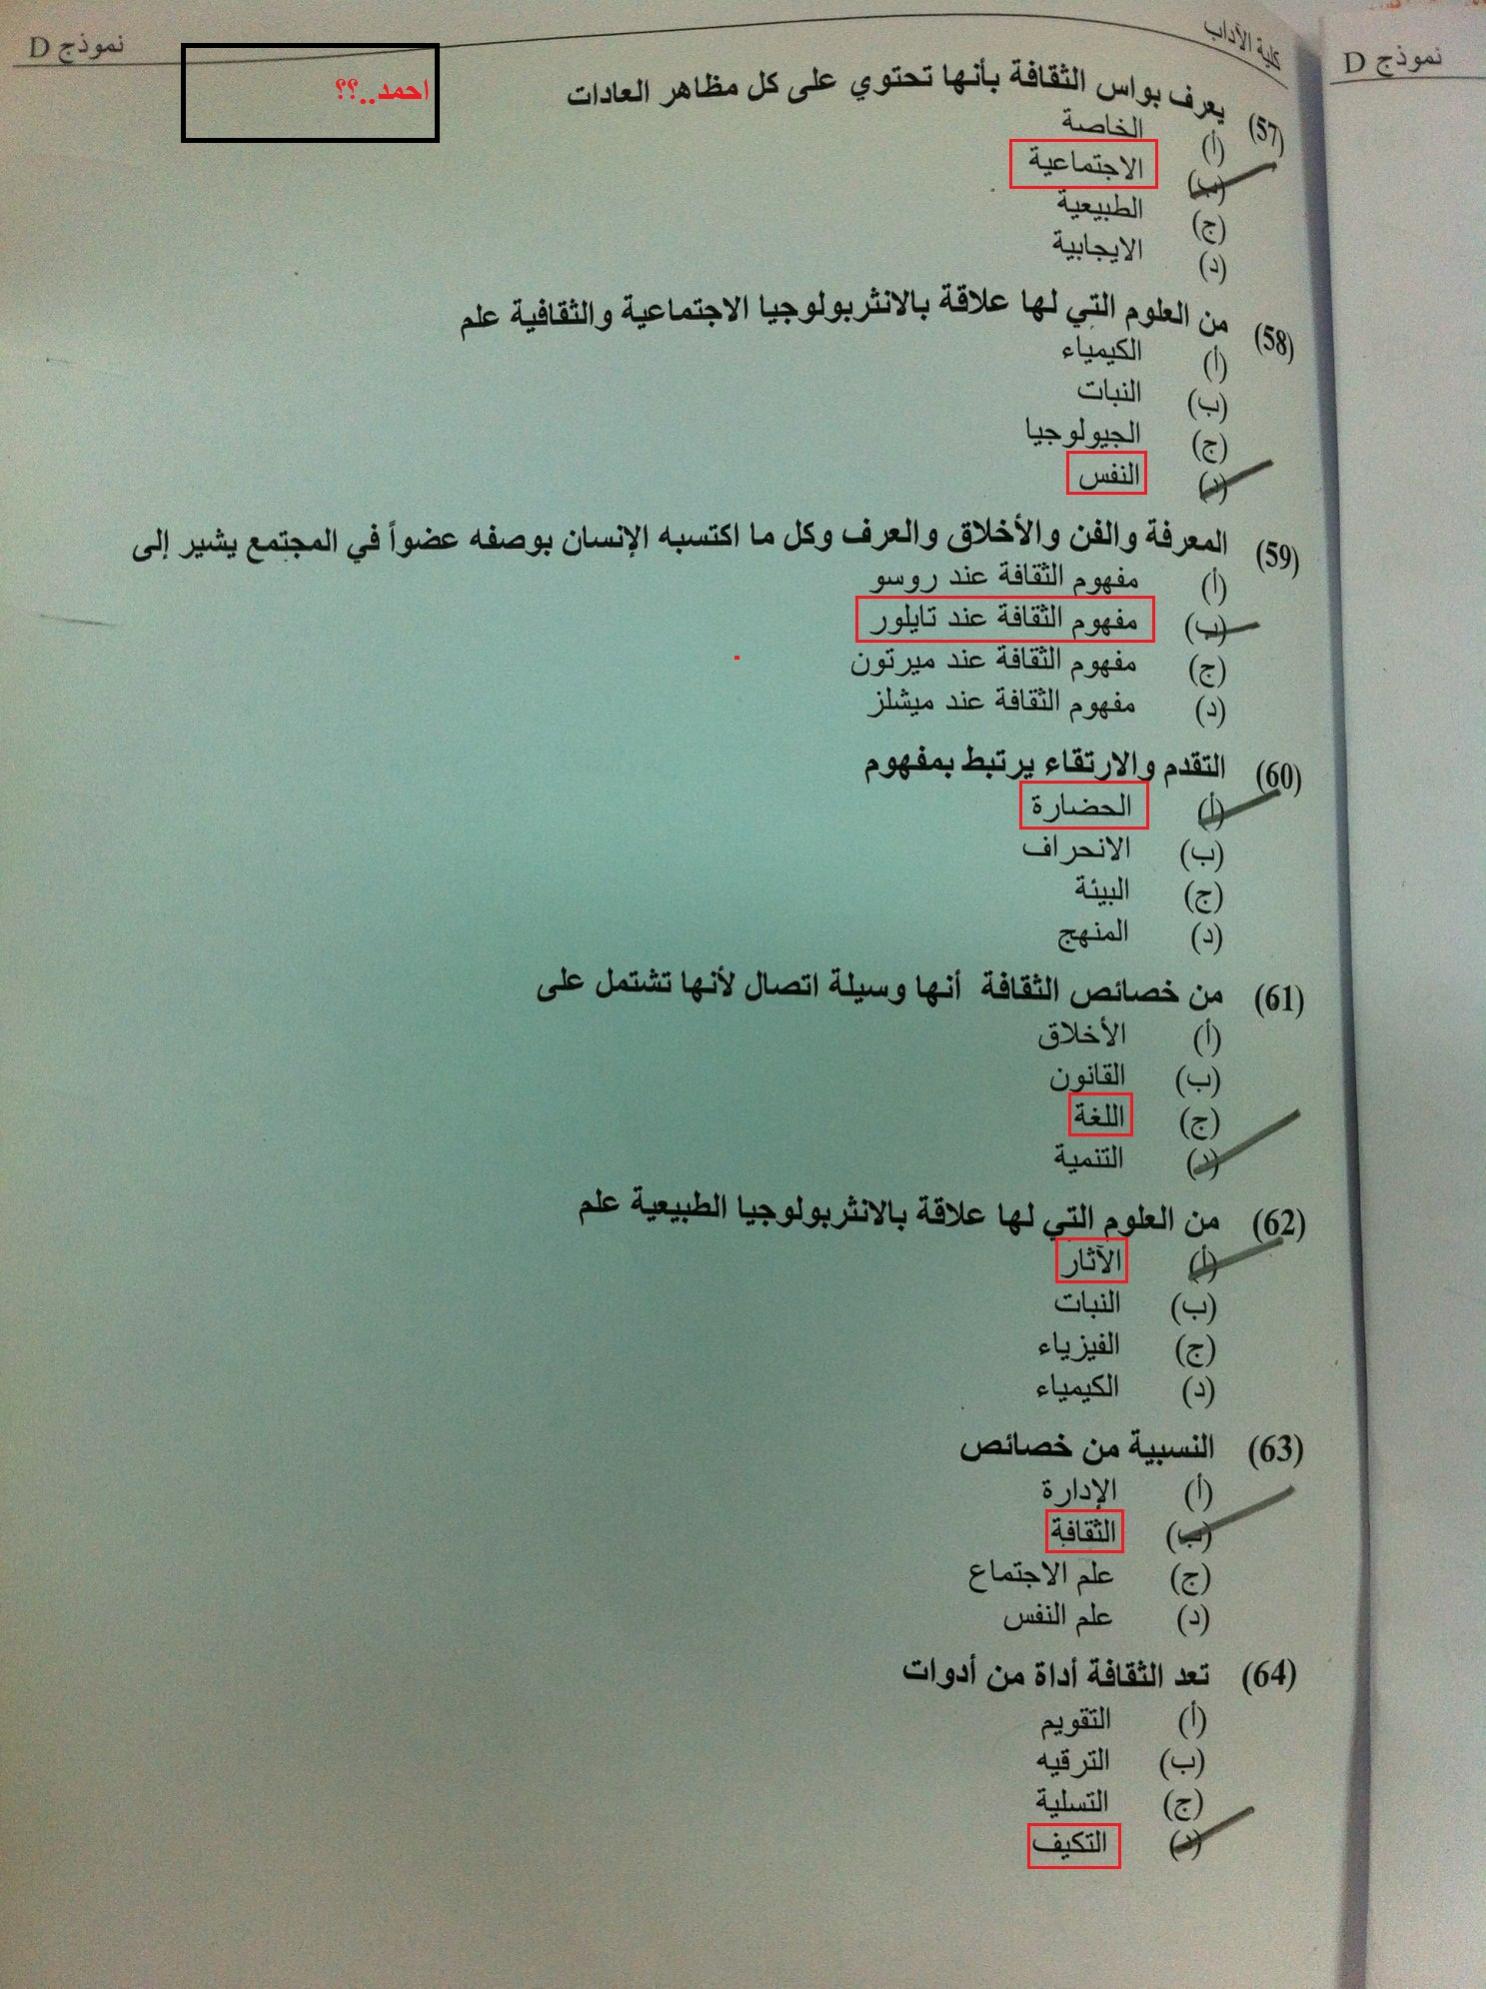 كلية الآداب
نموذج D
نموذج D
احمد..؟؟
(57) يعرف بواس الثقافة بأنها تحتوي على كل مظاهر العادات
(أ) الخاصة
(ب) الاجتماعية
(ج) الطبيعية
(د) الايجابية
(58) من العلوم التي لها علاقة بالانثربولوجيا الاجتماعية والثقافية علم
(أ) الكيمياء
(ب) النبات
(ج) الجيولوجيا
(د) النفس
(59) المعرفة والفن والأخلاق والعرف وكل ما اكتسبه الإنسان بوصفه عضواً في المجتمع يشير إلى
(أ) مفهوم الثقافة عند روسو
(ب) مفهوم الثقافة عند تايلور
(ج) مفهوم الثقافة عند ميرتون
(د) مفهوم الثقافة عند ميشلز
(60) التقدم والارتقاء يرتبط بمفهوم
(أ) الحضارة
(ب) الانحراف
(ج) البيئة
(د) المنهج
(61) من خصائص الثقافة أنها وسيلة اتصال لأنها تشتمل على
(أ) الأخلاق
(ب) القانون
(ج) اللغة
(د) التنمية
(62) من العلوم التي لها علاقة بالانثربولوجيا الطبيعية علم
(أ) الآثار
(ب) النبات
(ج) الفيزياء
(د) الكيمياء
(63) النسبية من خصائص
(أ) الإدارة
(ب) الثقافة
(ج) علم الاجتماع
(د) علم النفس
(64) تعد الثقافة أداة من أدوات
(أ) التقويم
(ب) الترقيه
(ج) التسلية
(د) التكيف